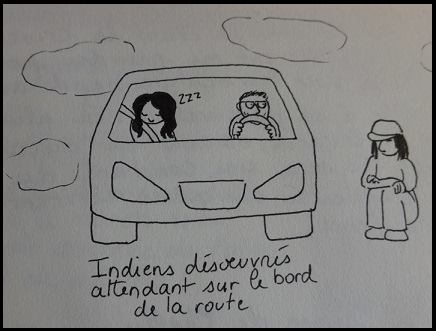 zzz
Indiens désœuvrés
attendant sur le bord
de la route